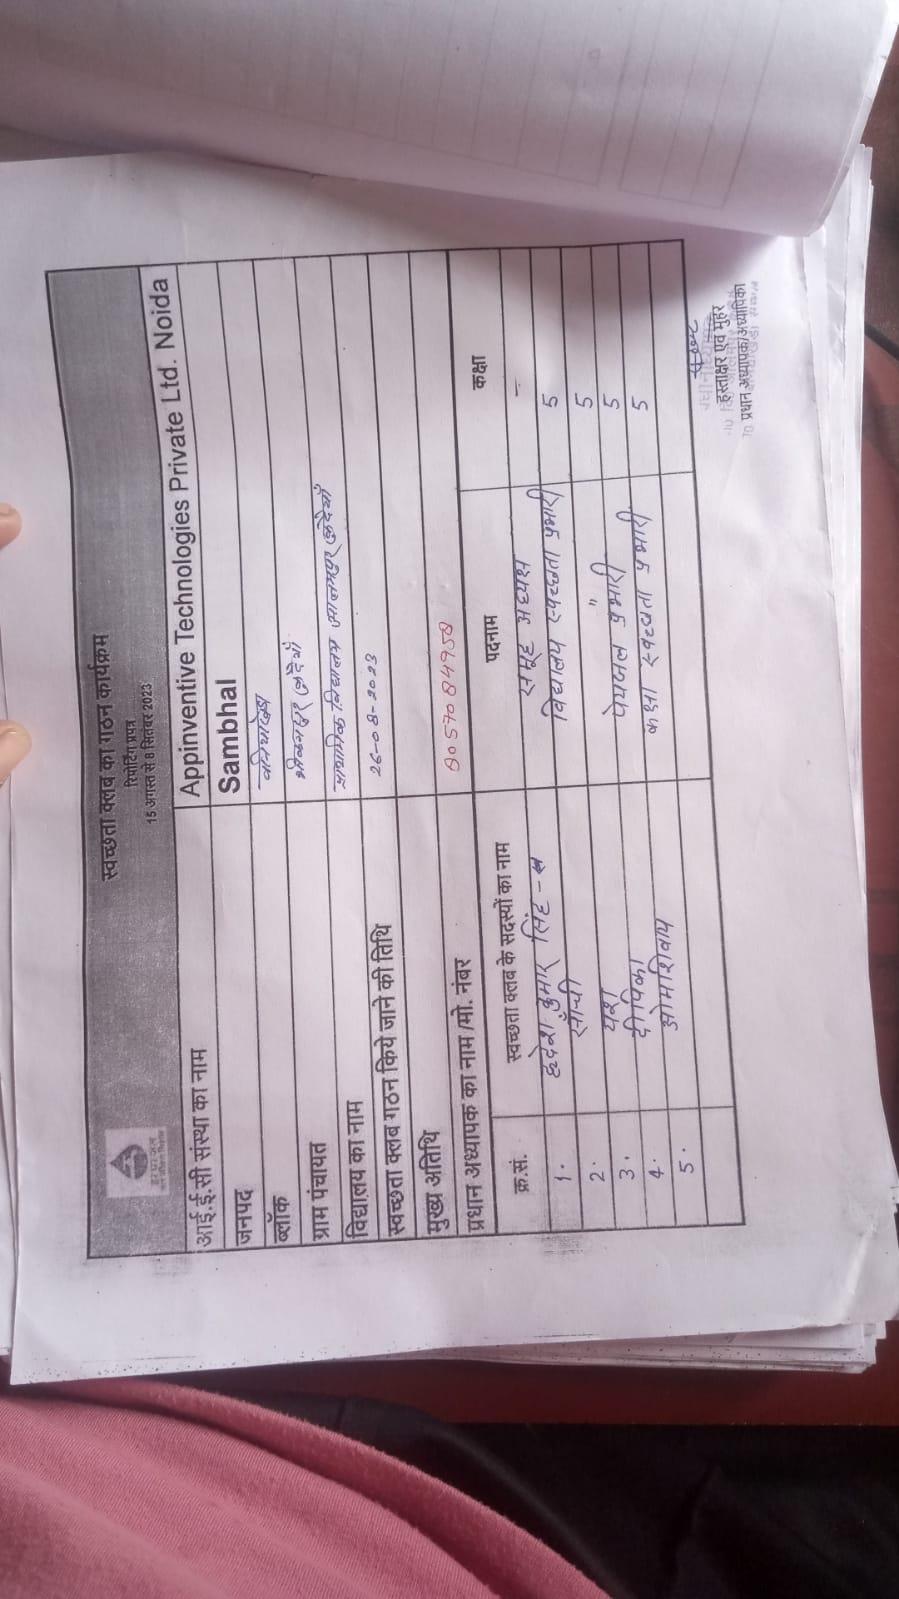 स्वच्छता क्लब का गठन कार्यक्रम
रिपोर्टिंग प्रपत्र
15 अगस्त से 8 सितंबर 2023
हर घर जल
आई.ई.सी संस्था का नाम Appinventive Technologies Private Ltd. Noida
जनपद Sambhal
ब्लॉक बनियाखेड़ा
ग्राम पंचायत
विद्यालय का नाम प्राथमिक विद्यालय आलमपुर
स्वच्छता क्लब गठन किये जाने की तिथि 26-08-2023
मुख्य अतिथि
प्रधान अध्यापक का नाम /मो. नंबर
क्र.सं. स्वच्छता क्लब के सदस्यों का नाम पदनाम कक्षा
1. हृदेश कुमार सिंह - समूह अध्यक्ष -
साँची विद्यालय स्वच्छता प्रभारी 5
2. यश " 5
3. दीपिका पेयजल प्रभारी 5
4. ओमशिवाय कक्षा स्वच्छता प्रभारी 5
5.
हस्ताक्षर एवं मुहर
प्रधान अध्यापक/अध्यापिका